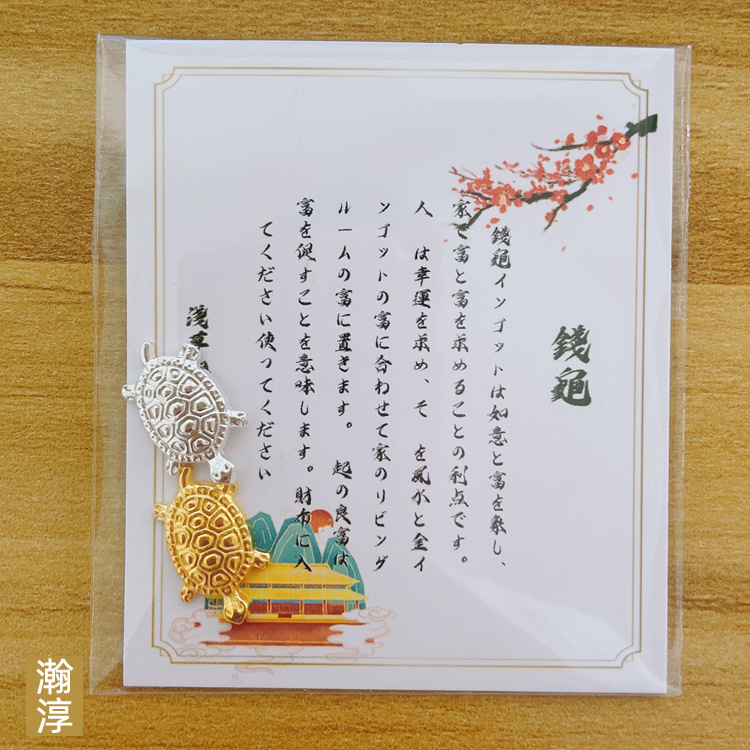 錢亀
錢亀インゴットは如意と富を表し、
家で富と富を求めることの利点です。
人 は幸運を求め、そ を風水と金イ
ンゴットの富に合わせて家のリビング
ルームの富に置きます。 起の良富は
富を促すことを意味します。財布に入
てください使ってください
浅草
瀚淳